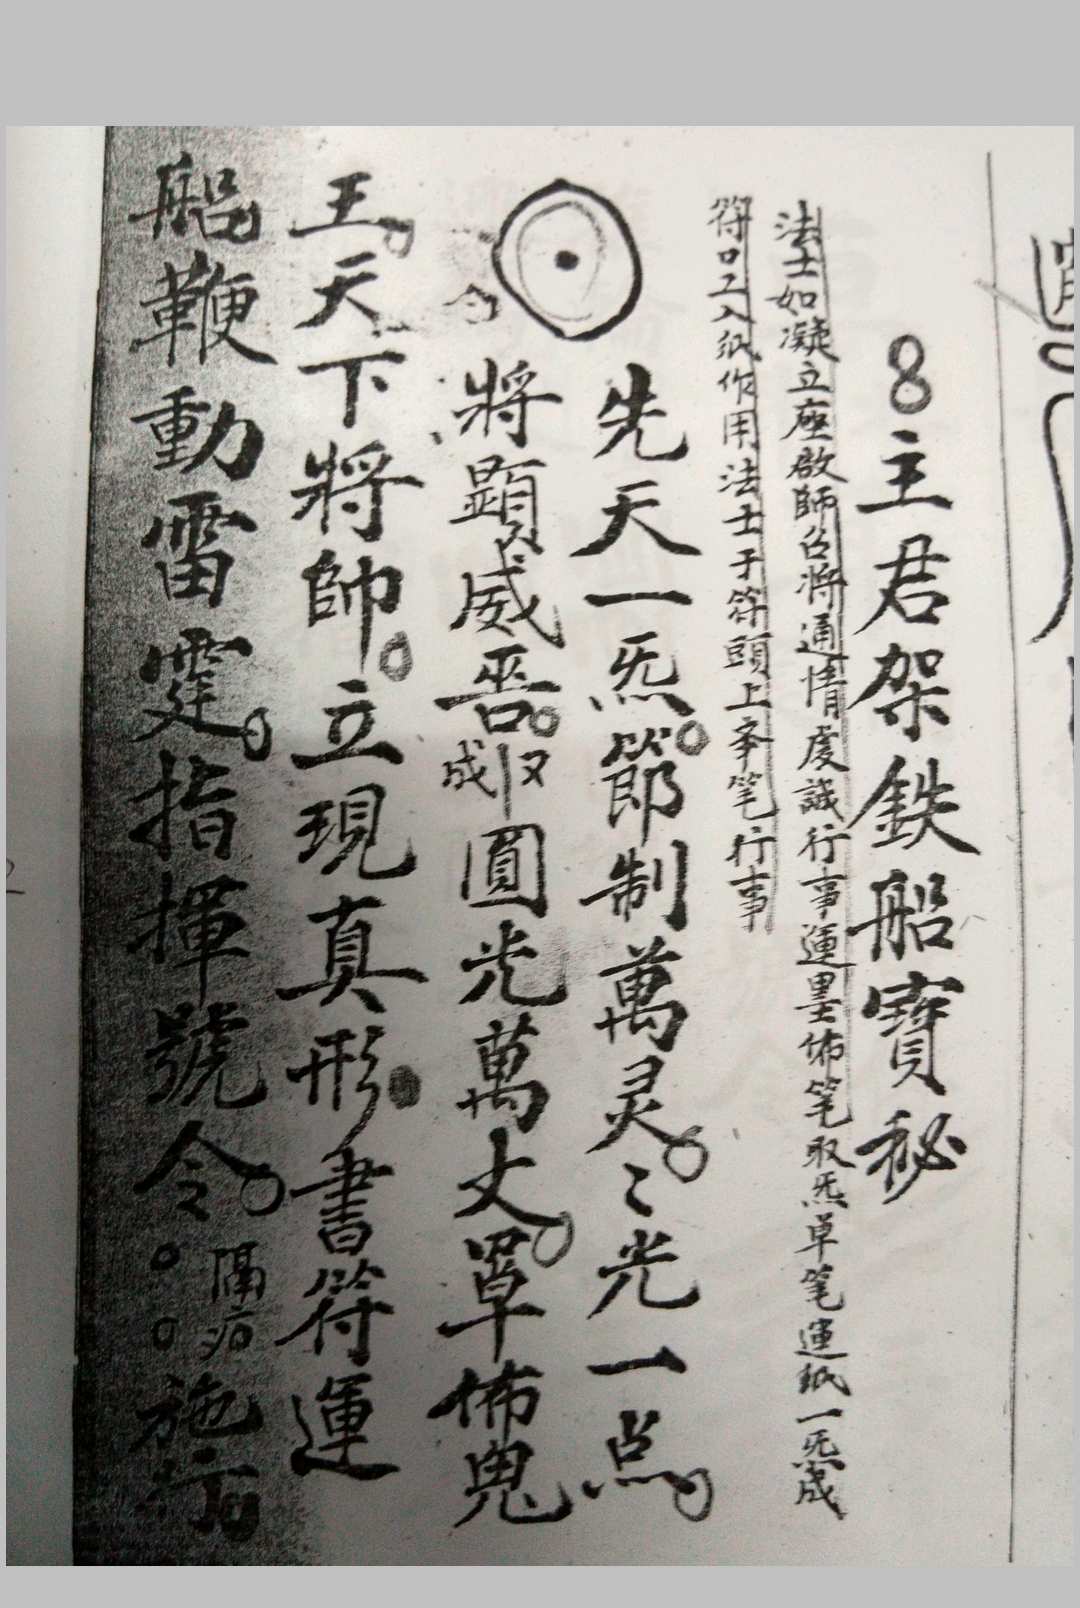 8主君架鉄船寶秘
法士如凝立座啟師召將通情虔誠行事運墨佈笔取炁草笔運紙一炁成
符口工入紙作用法士于符頭上奉笔行事
先天一炁。節制萬灵。〻光一点。
將顕威 。 成 圓光萬丈。罩佈鬼
王。天下將帥。立現真形 書符運
船鞭動雷霆。指揮號令。。。隔 施行